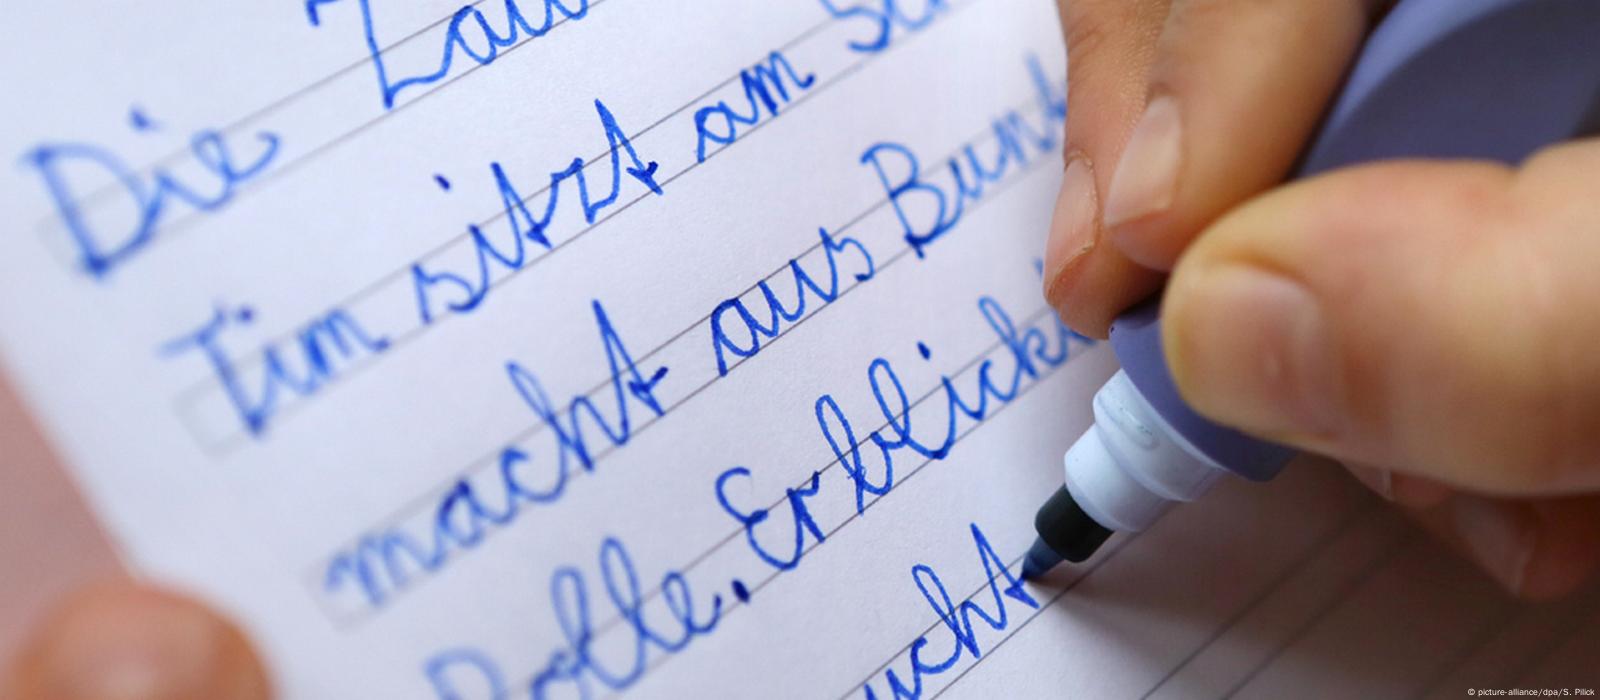 Die Zau
Tim sitzt am Sch
macht aus Bunt
Rolle. Er blickt
ucht
© picture-alliance/dpa/S. Pilick